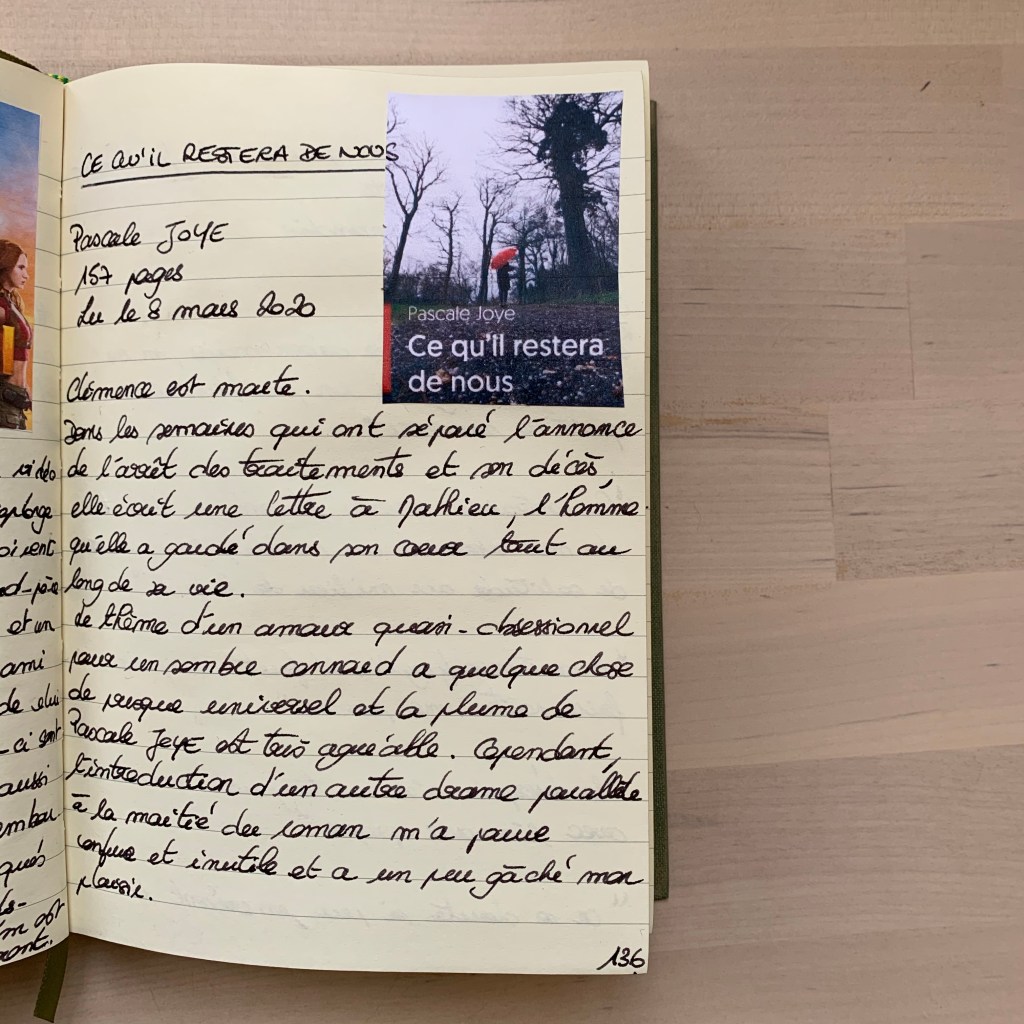 CE QU'IL RESTERA DE NOUS
Pascale JOYE
157 pages
Lu le 8 mars 2020
Pascale Joye
Ce qu'il restera
de nous
Clémence est morte.
Dans les semaines qui ont séparé l'annonce
de l'arrêt des traitements et son décès,
elle écrit une lettre à Mathieu, l'homme
qu'elle a gardé dans son coeur tout au
long de sa vie.
Le thème d'un amour quasi-obsessionnel
pour un sombre connard a quelque chose
de presque universel et la plume de
Pascale JOYE est très agréable. Cependant,
l'introduction d'un autre drame parallèle
à la moitié du roman m'a parue
confuse et inutile et a un peu gâché mon
plaisir.
136
vidéo
plonge
oivent
nd-père
et un
ami
de lui
-ci sont
aussi
qués
ls-
est